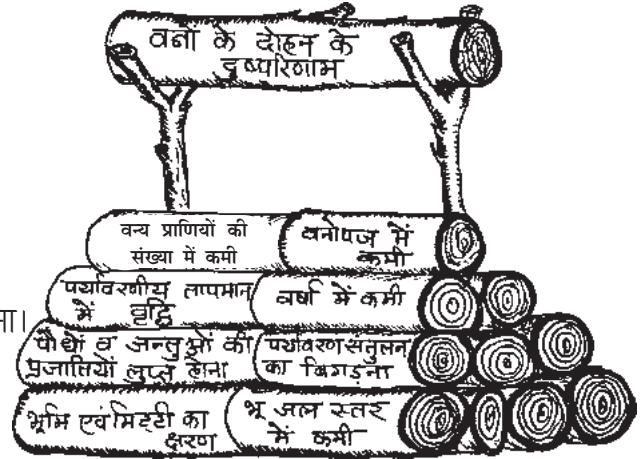 वनों के दोहन के
दुष्परिणाम
वन्य प्राणियों की
संख्या में कमी
वनोपज में
कमी
पर्यावरणीय तापमान
में वृद्धि
वर्षा में कमी
पौधों व जन्तुओं की
प्रजातियाँ लुप्त होना
पर्यावरण संतुलन
का बिगड़ना
भूमि एवं मिट्टी का
क्षरण
भू जल स्तर
में कमी